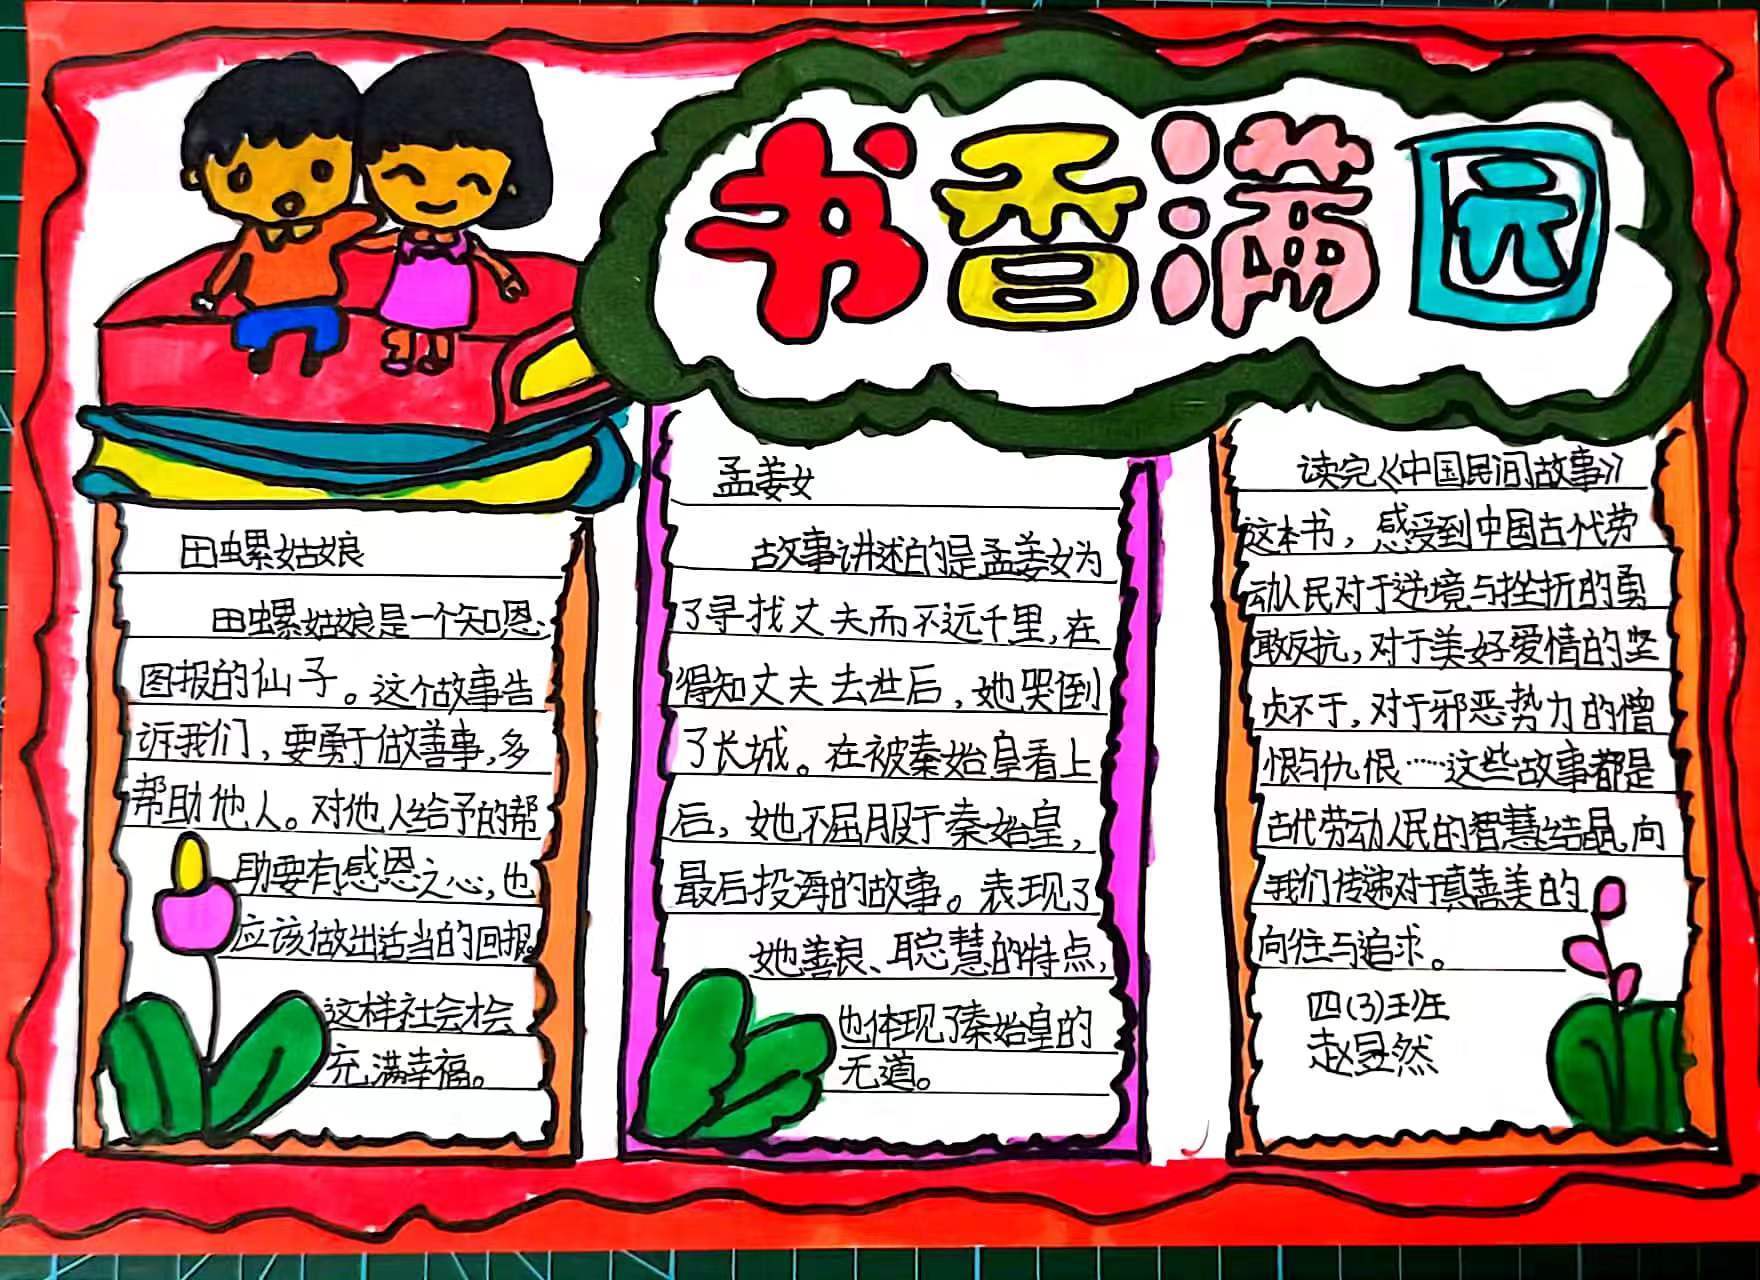 书香满园
田螺姑娘
田螺姑娘是一个知恩、
图报的仙子。这个故事告
诉我们，要勇于做善事，多
帮助他人。对他人给予的帮
助要有感恩之心，也
应该做出适当的回报。
这样社会才会
充满幸福。
孟姜女
故事讲述的是孟姜女为
了寻找丈夫而不远千里，在
得知丈夫去世后，她哭倒
了长城。在被秦始皇看上
后，她不屈服于秦始皇，
最后投海的故事。表现了
她善良、聪慧的特点，
也体现了秦始皇的
无道。
读完《中国民间故事》
这本书，感受到中国古代劳
动人民对于逆境与挫折的勇
敢反抗，对于美好爱情的坚
贞不于，对于邪恶势力的憎
恨与仇恨……这些故事都是
古代劳动人民的智慧结晶，向
我们传递对于真善美的
向往与追求。
四(3)班
赵昱然